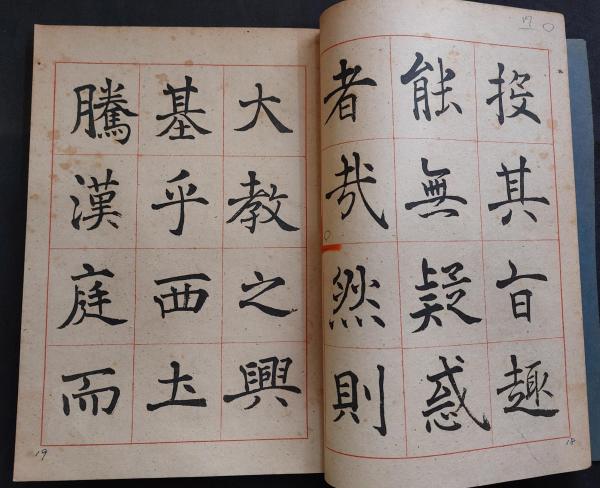 投其旨趣
能無疑惑
者哉然則
大教之興
基乎西土
騰漢庭而
18
19